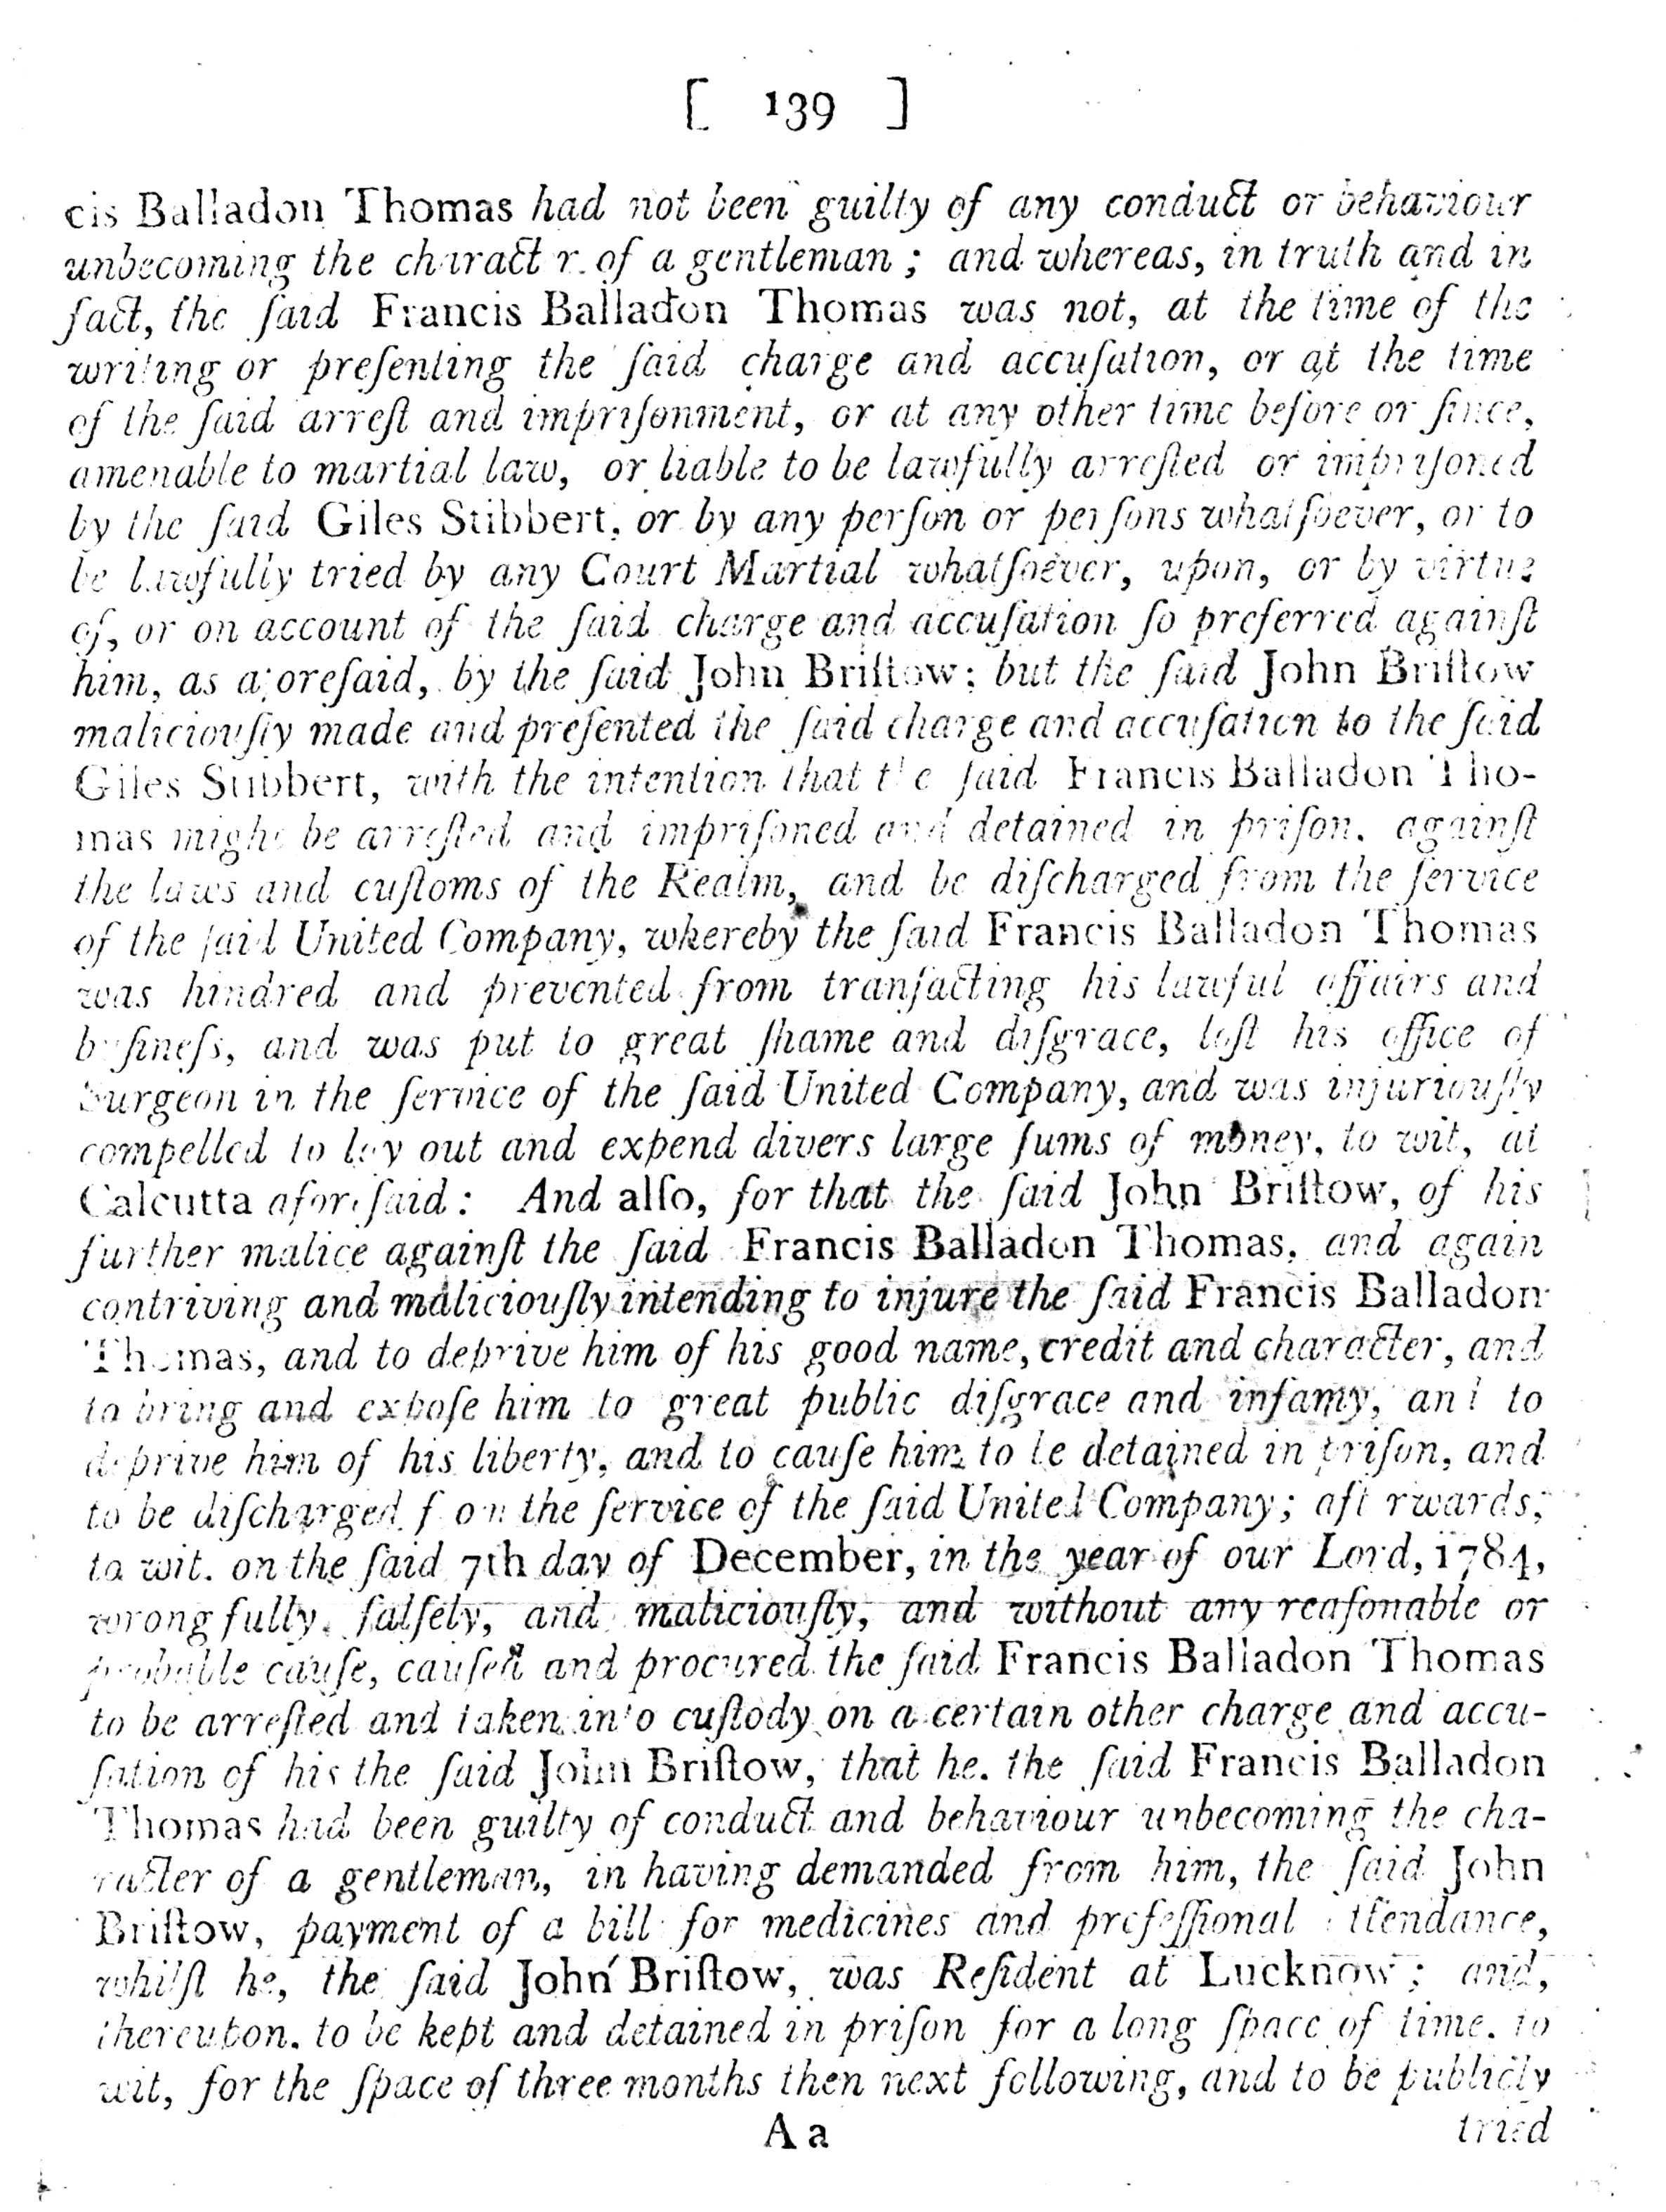 [ 139 ]
cis Balladon Thomas had not been guilty of any conduct or behaviour
unbecoming the charact r of a gentleman ; and whereas, in truth and in
fact, the ſaid Francis Balladon Thomas was not, at the time of the
writing or preſenting the ſaid charge and accuſation, or at the time
of the ſaid arreſt and impriſonment, or at any other time before or ſince,
amenable to martial law, or liable to be lawfully arreſted or impriſoned
by the ſaid Giles Stibbert, or by any perſon or perſons whatſoever, or to
be lawfully tried by any Court Martial whatſoever, upon, or by virtue
of, or on account of the ſaid charge and accuſation ſo preferred againſt
him, as aforeſaid, by the ſaid John Briſtow; but the ſaid John Briſtow
maliciouſly made and preſented the ſaid charge and accuſation to the ſaid
Giles Stibbert, with the intention that the ſaid Francis Balladon Tho-
mas might be arreſted and impriſoned and detained in priſon, againſt
the laws and cuſtoms of the Realm, and be diſcharged from the ſervice
of the ſaid United Company, whereby the ſaid Francis Balladon Thomas
was hindred and prevented from tranſacting his lawful affairs and
buſineſs, and was put to great ſhame and diſgrace, loſt his office of
Surgeon in the ſervice of the ſaid United Company, and was injuriouſly
compelled to lay out and expend divers large ſums of money, to wit, at
Calcutta aforeſaid : And alſo, for that the ſaid John Briſtow, of his
further malice againſt the ſaid Francis Balladon Thomas, and again
contriving and maliciouſly intending to injure the ſaid Francis Balladon
Thomas, and to deprive him of his good name, credit and character, and
to bring and expoſe him to great public diſgrace and infamy, and to
deprive him of his liberty, and to cauſe him to be detained in priſon, and
to be diſcharged from the ſervice of the ſaid United Company; afterwards,
to wit, on the ſaid 7th day of December, in the year of our Lord, 1784,
wrongfully, falſely, and maliciouſly, and without any reaſonable or
probable cauſe, cauſed and procured the ſaid Francis Balladon Thomas
to be arreſted and taken into cuſtody on a certain other charge and accu-
ſation of his the ſaid John Briſtow, that he, the ſaid Francis Balladon
Thomas had been guilty of conduct and behaviour unbecoming the cha-
racter of a gentleman, in having demanded from him, the ſaid John
Briſtow, payment of a bill for medicines and profeſſional attendance,
whilſt he, the ſaid John Briſtow, was Reſident at Lucknow ; and,
thereupon, to be kept and detained in priſon for a long ſpace of time, to
wit, for the ſpace of three months then next following, and to be publicly
A a tried